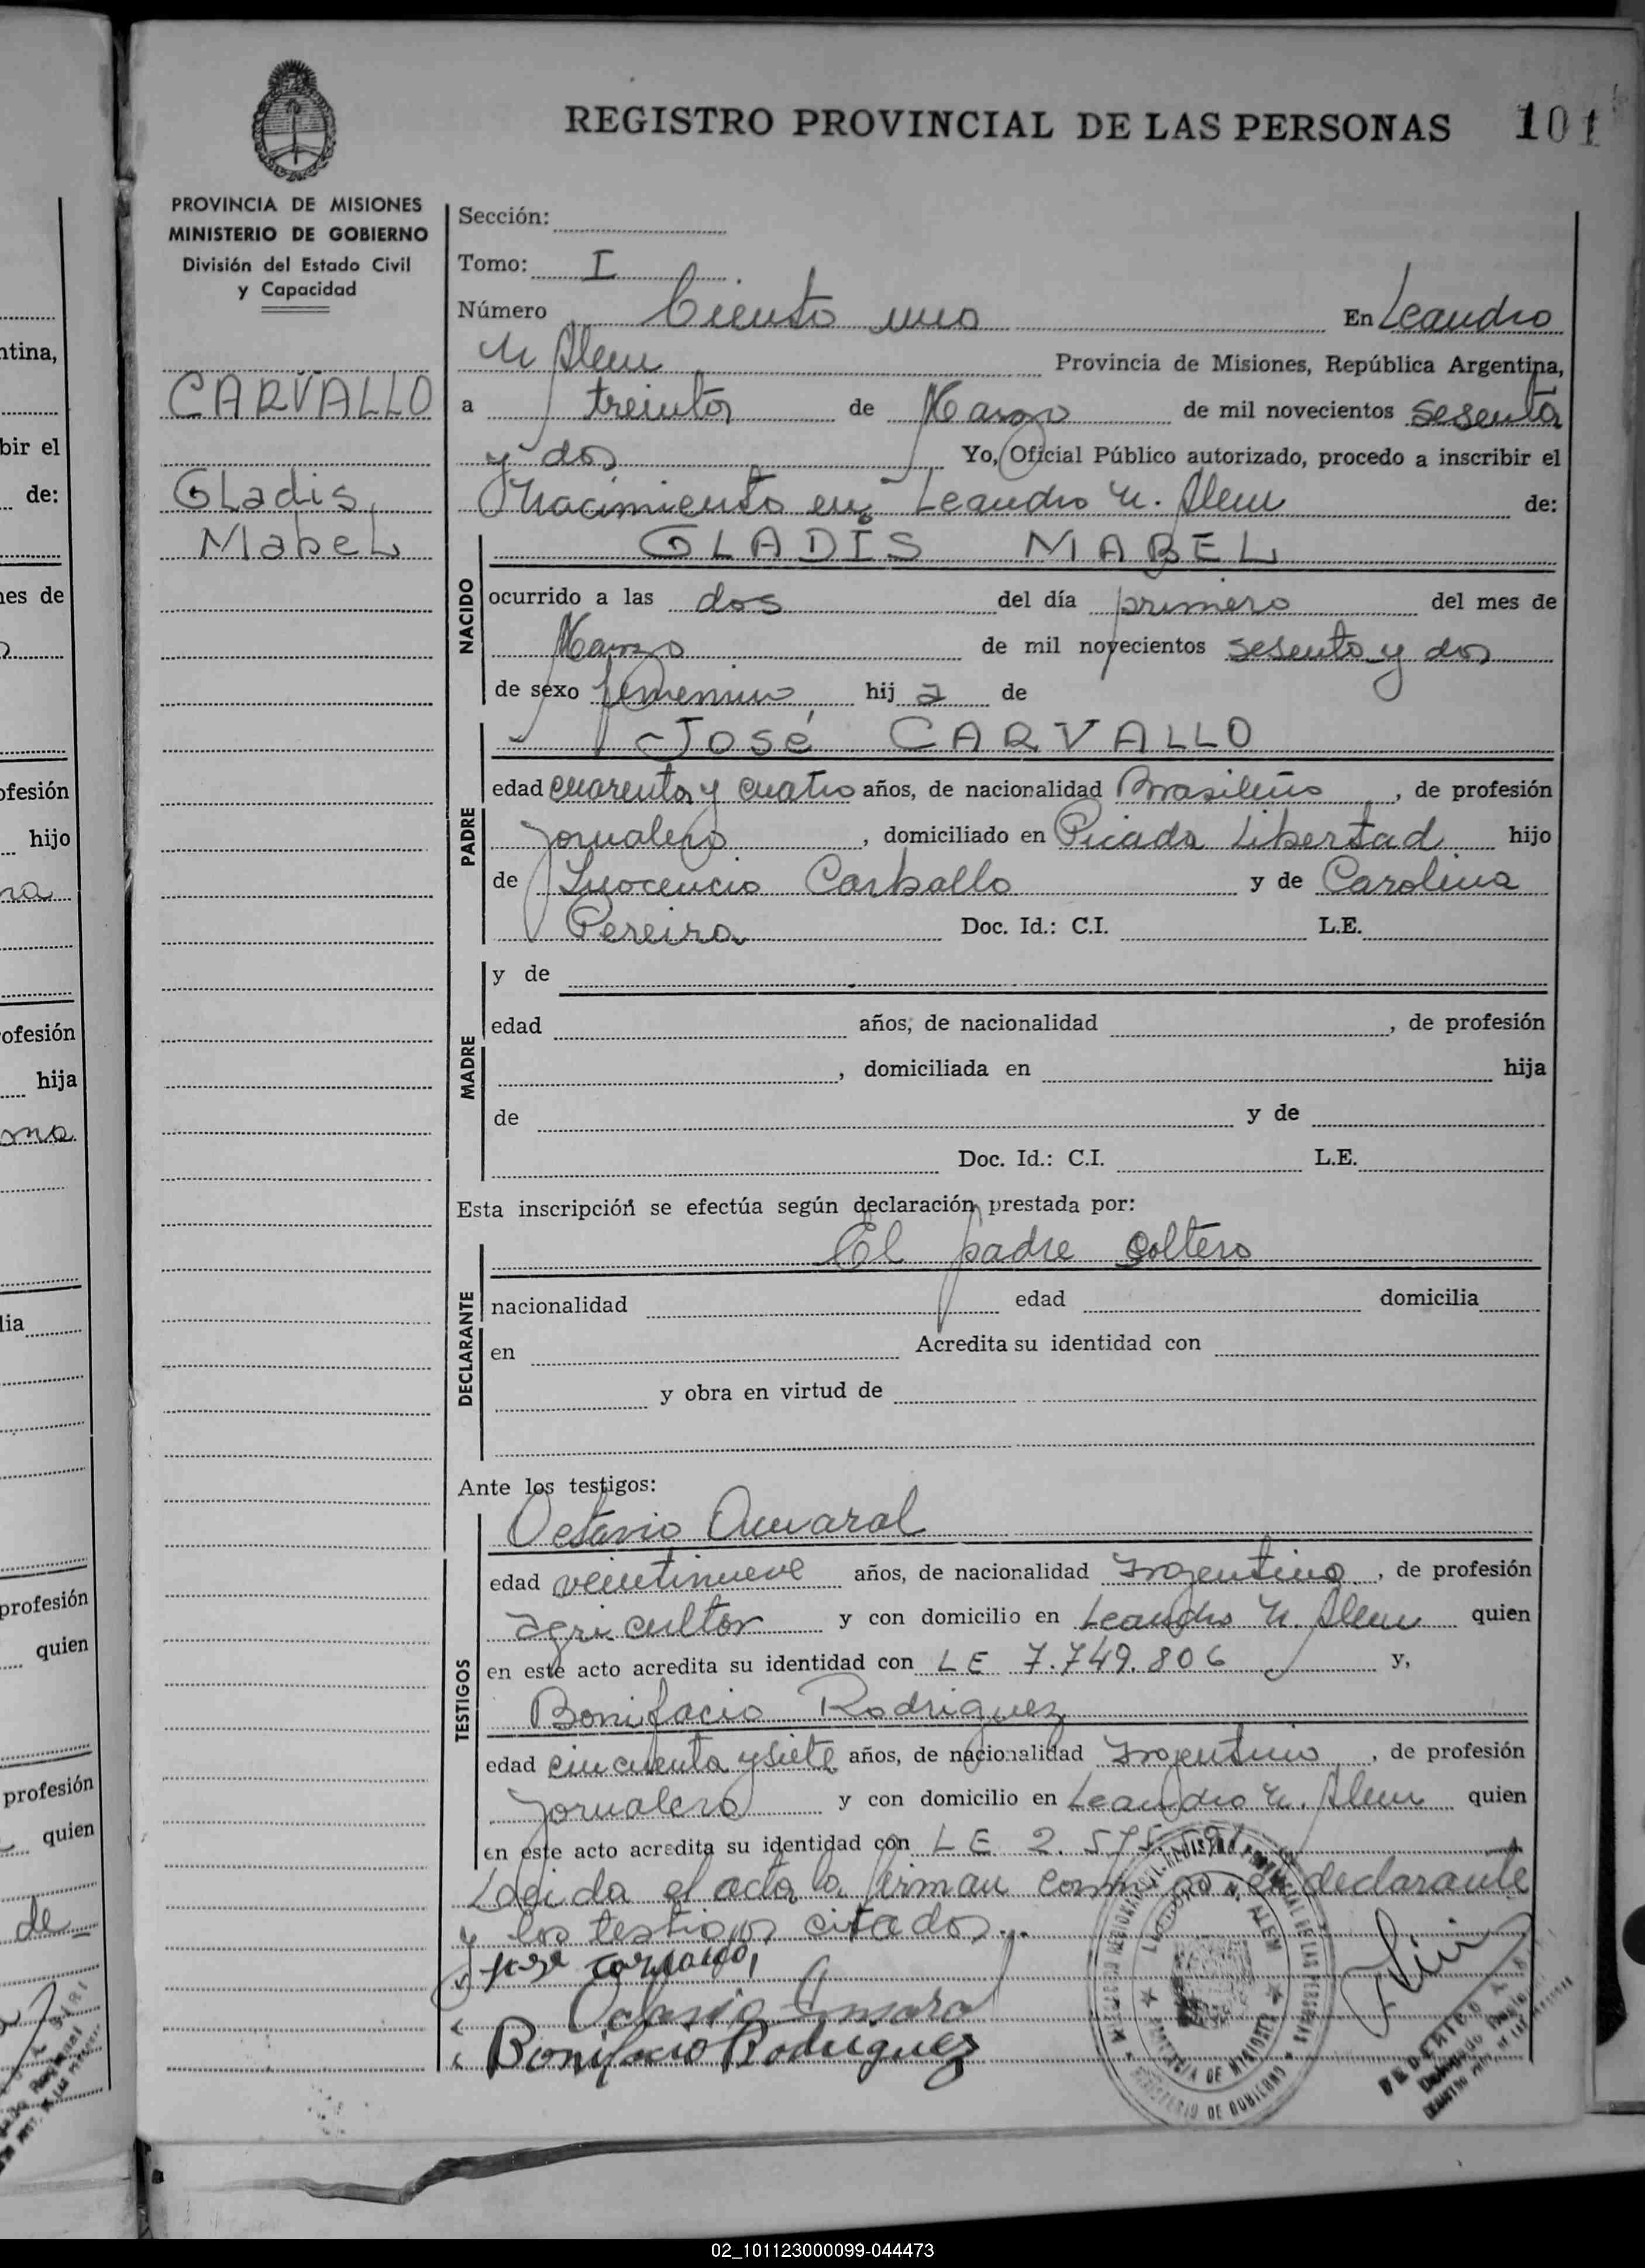 REGISTRO PROVINCIAL DE LAS PERSONAS 101
PROVINCIA DE MISIONES
MINISTERIO DE GOBIERNO
División del Estado Civil
y Capacidad
CARVALLO
Gladis
Mabel
Sección:
Tomo: I
Número Ciento uno En Leandro
N Alem Provincia de Misiones, República Argentina,
a treinta de Marzo de mil novecientos sesenta
y dos Yo, Oficial Público autorizado, procedo a inscribir el
Nacimiento en Leandro N. Alem de:
NACIDO
GLADIS MABEL
ocurrido a las dos del día primero del mes de
Marzo de mil novecientos sesenta y dos
de sexo femenino hij a de
PADRE
José CARVALLO
edad cuarenta y cuatro años, de nacionalidad Brasileño, de profesión
jornalero, domiciliado en Picada Libertad hijo
de Inocencio Carballo y de Carolina
Pereira Doc. Id.: C.I. L.E.
MADRE
y de
edad años, de nacionalidad , de profesión
, domiciliada en hija
de y de
Doc. Id.: C.I. L.E.
Esta inscripción se efectúa según declaración prestada por:
DECLARANTE
El padre soltero
nacionalidad edad domicilia
en Acredita su identidad con
y obra en virtud de
Ante los testigos:
TESTIGOS
Octavio Amaral
edad veintinueve años, de nacionalidad argentino, de profesión
agricultor y con domicilio en Leandro N. Alem quien
en este acto acredita su identidad con LE 7.749.806 y,
Bonifacio Rodriguez
edad cincuenta y siete años, de nacionalidad argentino, de profesión
jornalero y con domicilio en Leandro N. Alem quien
en este acto acredita su identidad con LE 2.575.
Leida el acta la firman conmigo el declarante
y los testigos citados
Jose
Octavio Amaral
Bonifacio Rodriguez
ntina,
bir el
de:
nes de
ofesión
hijo
ofesión
hija
lia
profesión
quien
profesión
quien
de
02_101123000099-044473